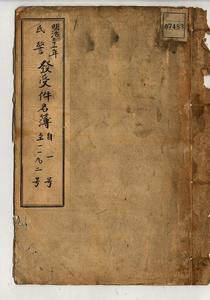 明治三十一年
民警發受件名簿 自一号
至一一九二号
07483